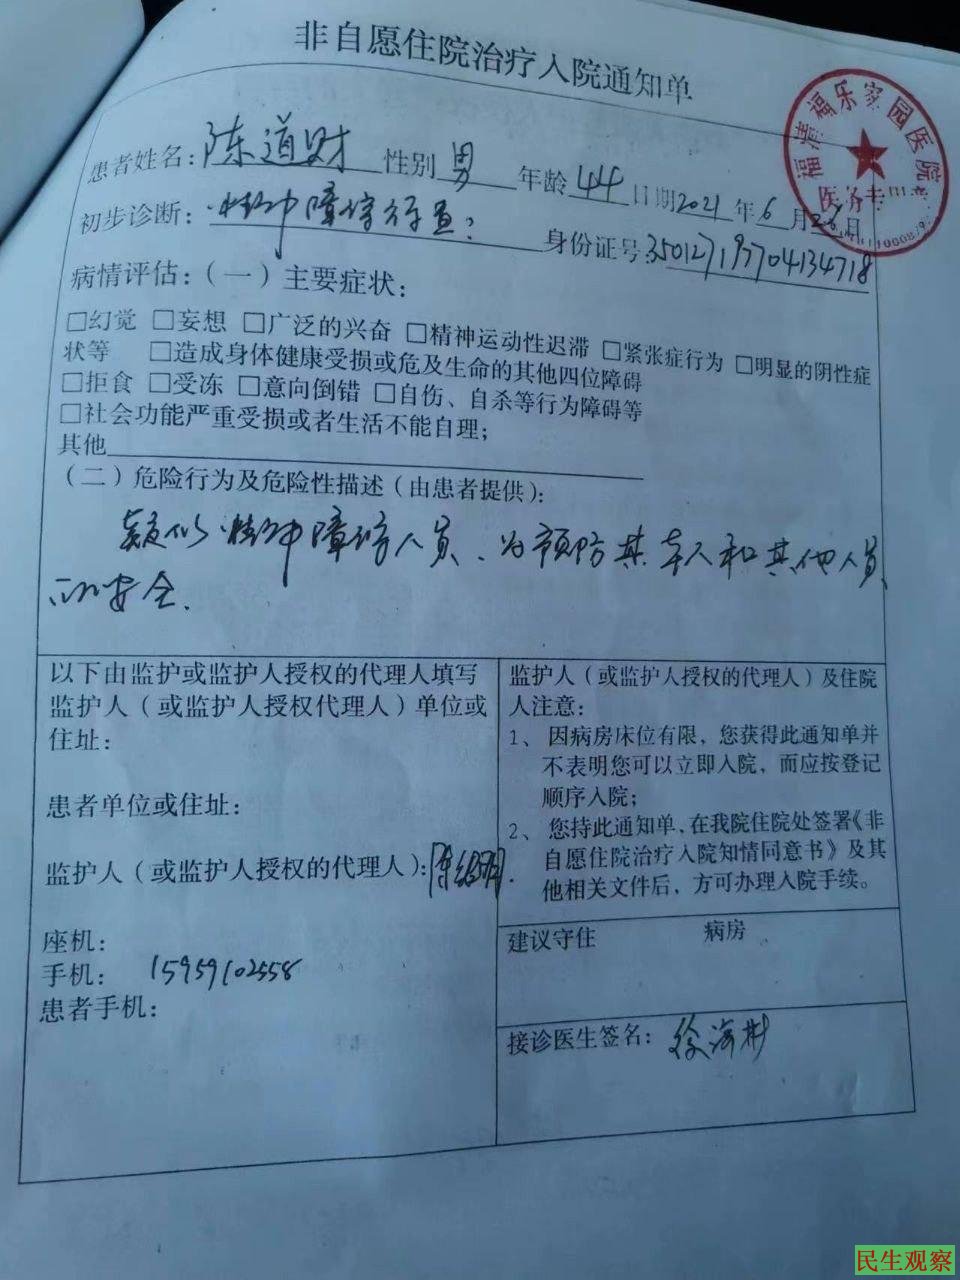 非自愿住院治疗入院通知单
福清福乐家园医院
医务专用章
患者姓名：陈道财 性别 男 年龄 44 日期2021年6月26日
初步诊断：精神障碍 身份证号：350127197704134718
病情评估：（一）主要症状：
□幻觉 □妄想 □广泛的兴奋 □精神运动性迟滞 □紧张症行为 □明显的阴性症
状等 □造成身体健康受损或危及生命的其他四位障碍
□拒食 □受冻 □意向倒错 □自伤、自杀等行为障碍等
□社会功能严重受损或者生活不能自理；
其他
（二）危险行为及危险性描述（由患者提供）：
疑似精神障碍人员、为预防其本人和其他人员
的安全.
以下由监护或监护人授权的代理人填写
监护人（或监护人授权代理人）单位或
住址：
患者单位或住址：
监护人（或监护人授权的代理人）：
座机：
手机： 15959102558
患者手机：
监护人（或监护人授权的代理人）及住院
人注意：
1、因病房床位有限，您获得此通知单并
不表明您可以立即入院，而应按登记
顺序入院；
2、您持此通知单，在我院住院处签署《非
自愿住院治疗入院知情同意书》及其
他相关文件后，方可办理入院手续。
建议守住 病房
接诊医生签名：徐海彬
民生观察